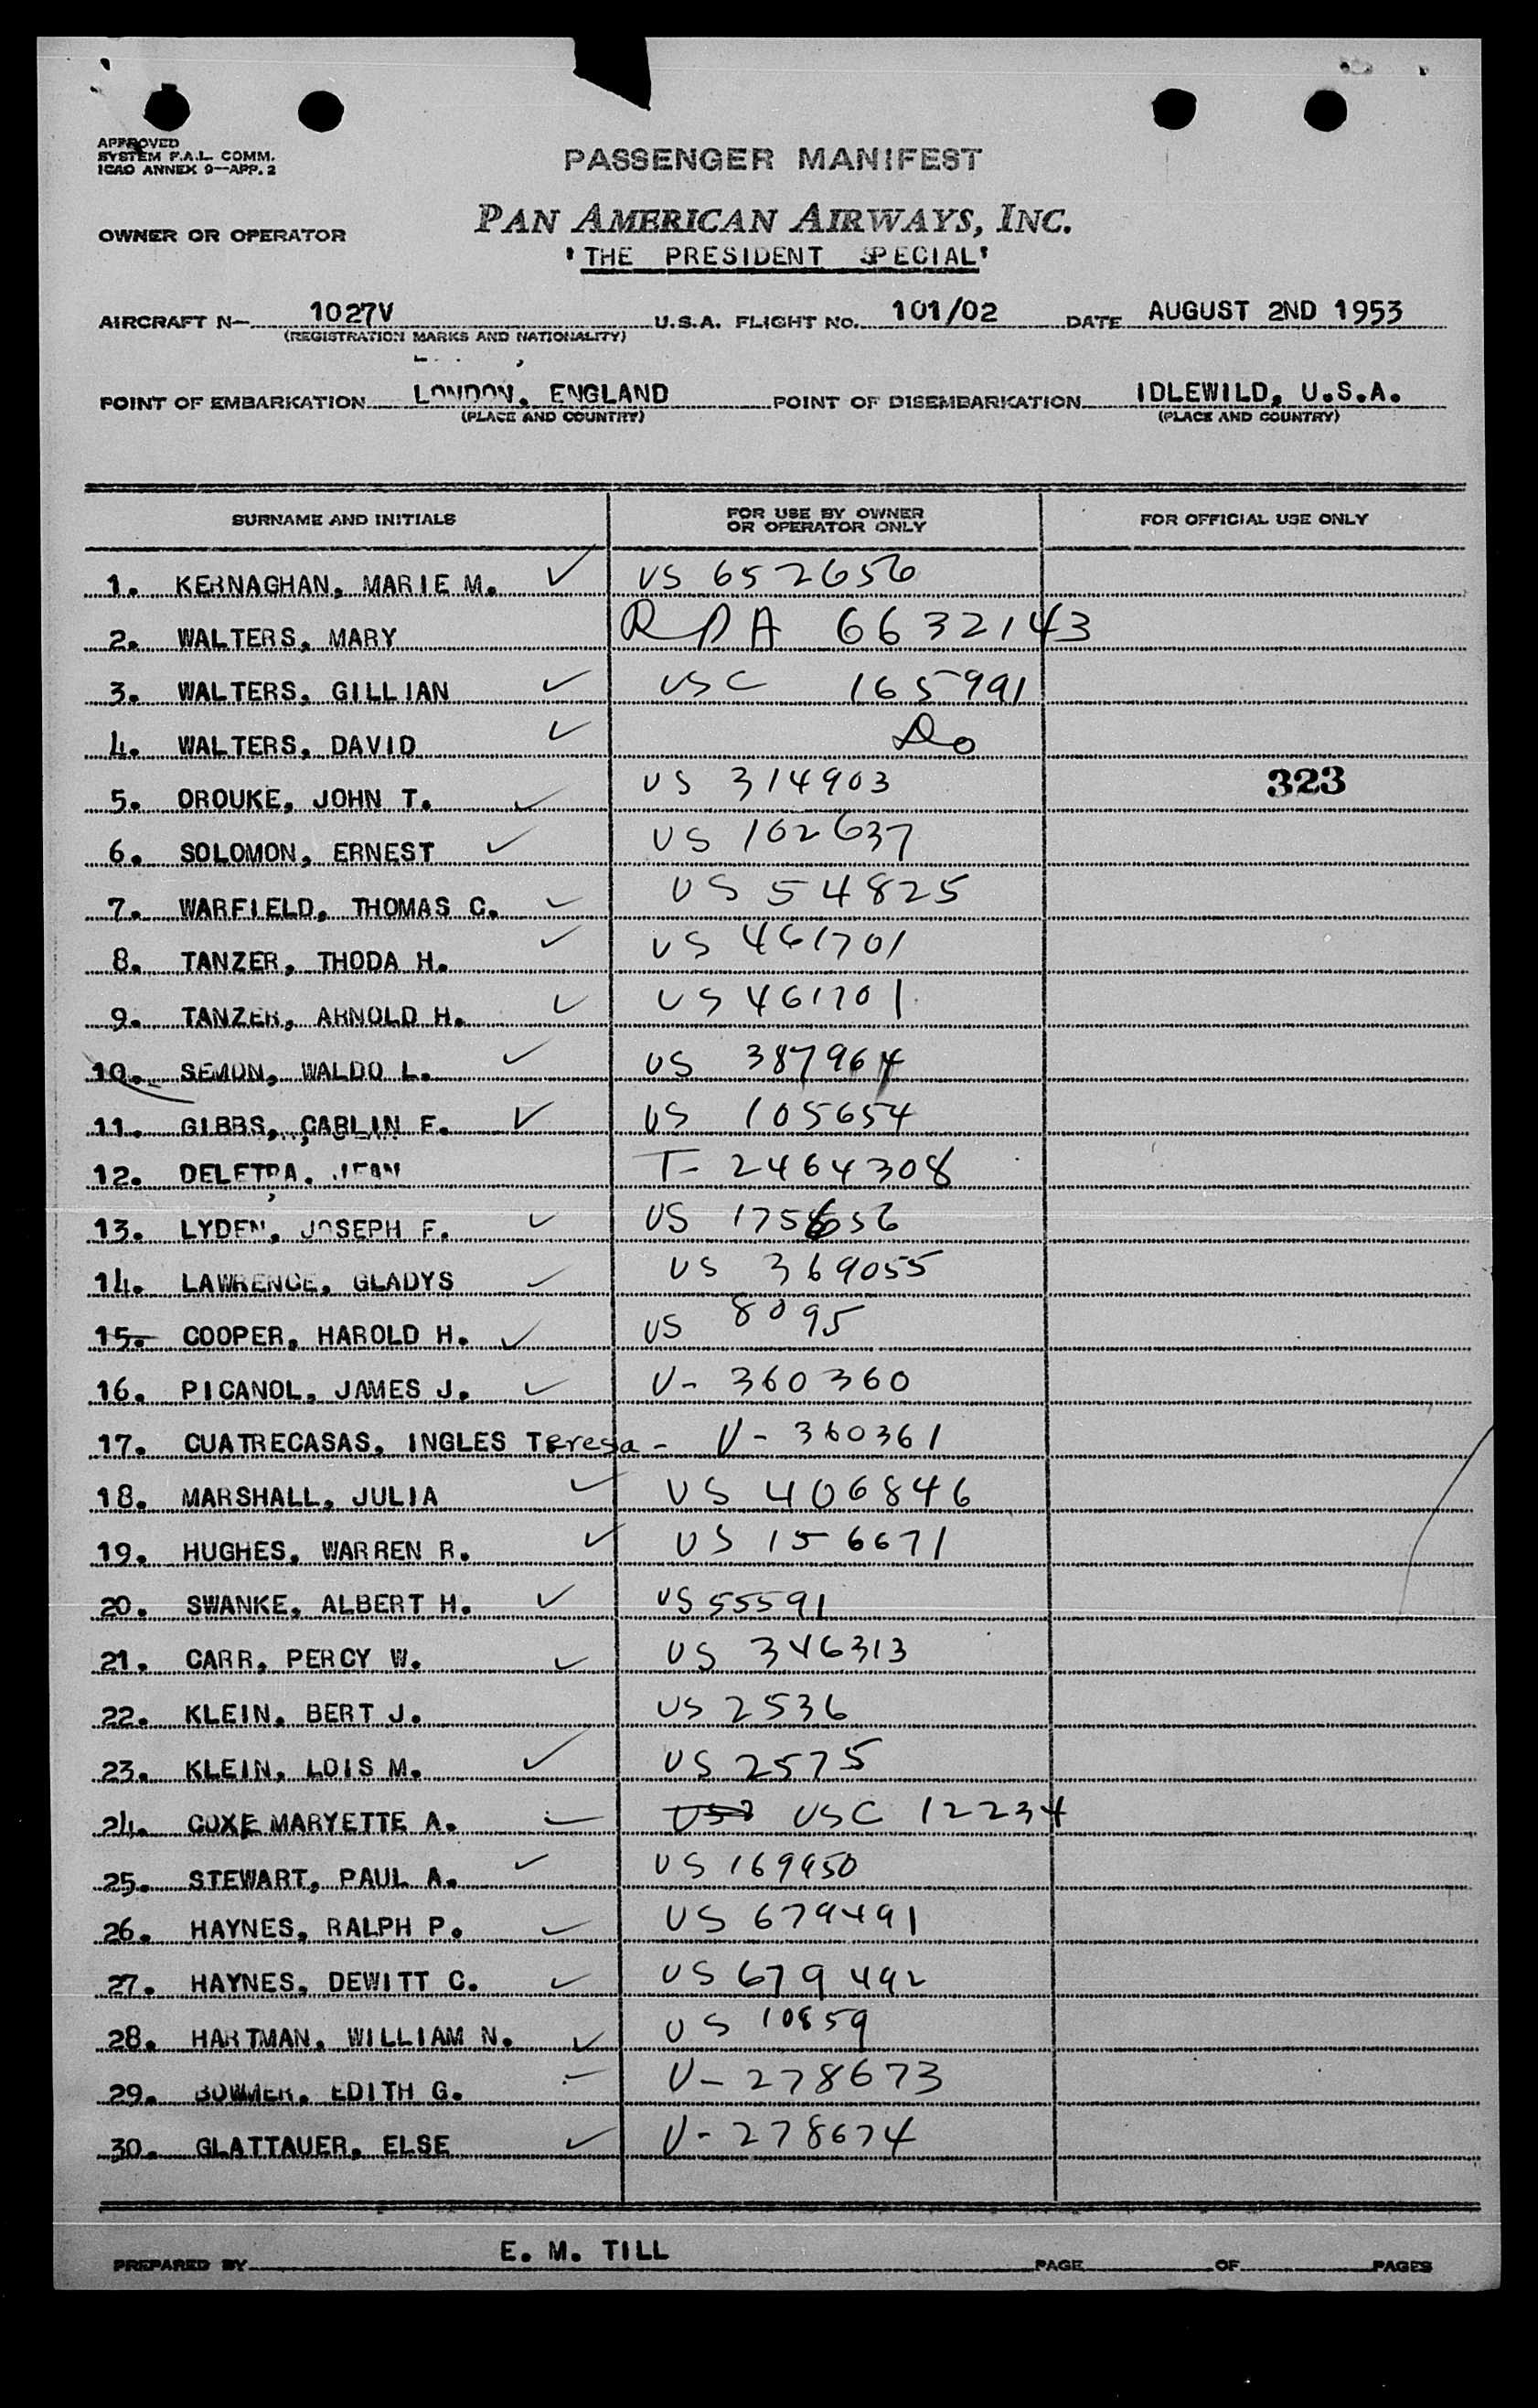 APPROVED
SYSTEM F.A.L. COMM.
ICAO ANNEX 9—APP. 2
PASSENGER MANIFEST
OWNER OR OPERATOR PAN AMERICAN AIRWAYS, INC.
'THE PRESIDENT SPECIAL'
AIRCRAFT N— 1027V U.S.A. FLIGHT NO. 101/02 DATE AUGUST 2ND 1953
(REGISTRATION MARKS AND NATIONALITY)
POINT OF EMBARKATION LONDON, ENGLAND POINT OF DISEMBARKATION IDLEWILD, U.S.A.
(PLACE AND COUNTRY) (PLACE AND COUNTRY)
SURNAME AND INITIALS FOR USE BY OWNER OR OPERATOR ONLY FOR OFFICIAL USE ONLY
1. KERNAGHAN, MARIE M. ✓ US 652656
2. WALTERS, MARY RPA 6632143
3. WALTERS, GILLIAN ✓ USC 165991
4. WALTERS, DAVID ✓ Do
5. OROUKE, JOHN T. ✓ US 314903 323
6. SOLOMON, ERNEST ✓ US 102637
7. WARFIELD, THOMAS C. ✓ US 54825
8. TANZER, THODA H. ✓ US 461701
9. TANZER, ARNOLD H. ✓ US 461701
10. SEMON, WALDO L. ✓ US 387964
11. GIBBS, CARLIN F. ✓ US 105654
12. DELETRA, JEAN T- 2464308
13. LYDEN, JOSEPH F. ✓ US
14. LAWRENCE, GLADYS ✓ US 369055
15. COOPER, HAROLD H. ✓ US 8095
16. PICANOL, JAMES J. ✓ V- 360360
17. CUATRECASAS, INGLES Teresa - V- 360361
18. MARSHALL, JULIA ✓ US 406846
19. HUGHES, WARREN R. ✓ US 156671
20. SWANKE, ALBERT H. ✓ US 55591
21. CARR, PERCY W. ✓ US 346313
22. KLEIN, BERT J. US 2536
23. KLEIN, LOIS M. ✓ US 2575
24. COXE MARYETTE A. ✓ USC 12234
25. STEWART, PAUL A. ✓ US 169950
26. HAYNES, RALPH P. ✓ US 679491
27. HAYNES, DEWITT C. ✓ US 679492
28. HARTMAN, WILLIAM N. ✓ US 10859
29. BOWMER, EDITH G. V- 278673
30. GLATTAUER, ELSE ✓ V- 278674
PREPARED BY E. M. TILL PAGE OF PAGES